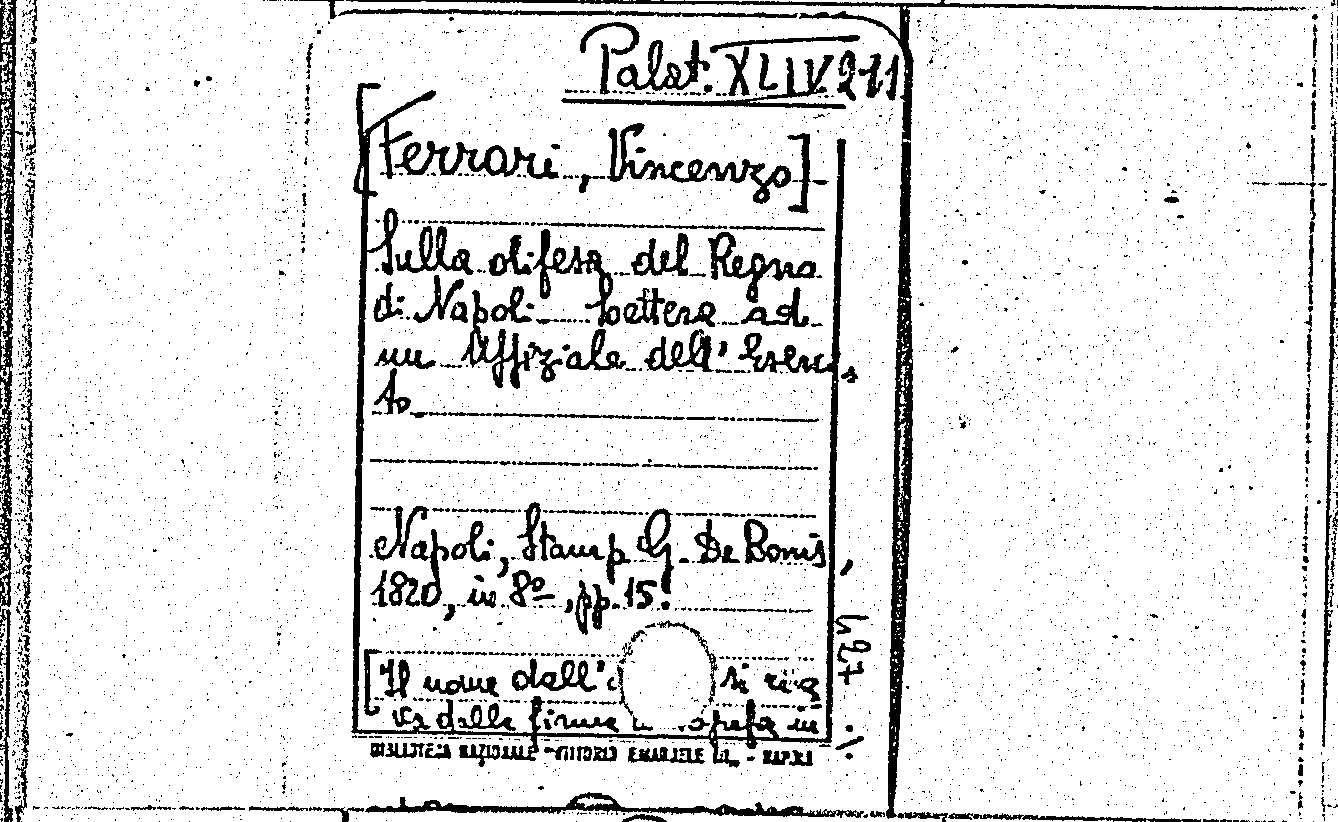 Palat. XLIV 211
[Ferrari, Vincenzo]
Sulla difesa del Regno
di Napoli. Lettera ad
un Uffiziale dell'Eserci
to.
Napoli, Stamp. G. De Bonis,
1820, in 8º, pp. 15.
[Il nome dall' si rica
va dalla firma in
BIBLIOTECA NAZIONALE "VITTORIO EMANUELE III" - NAPOLI
427